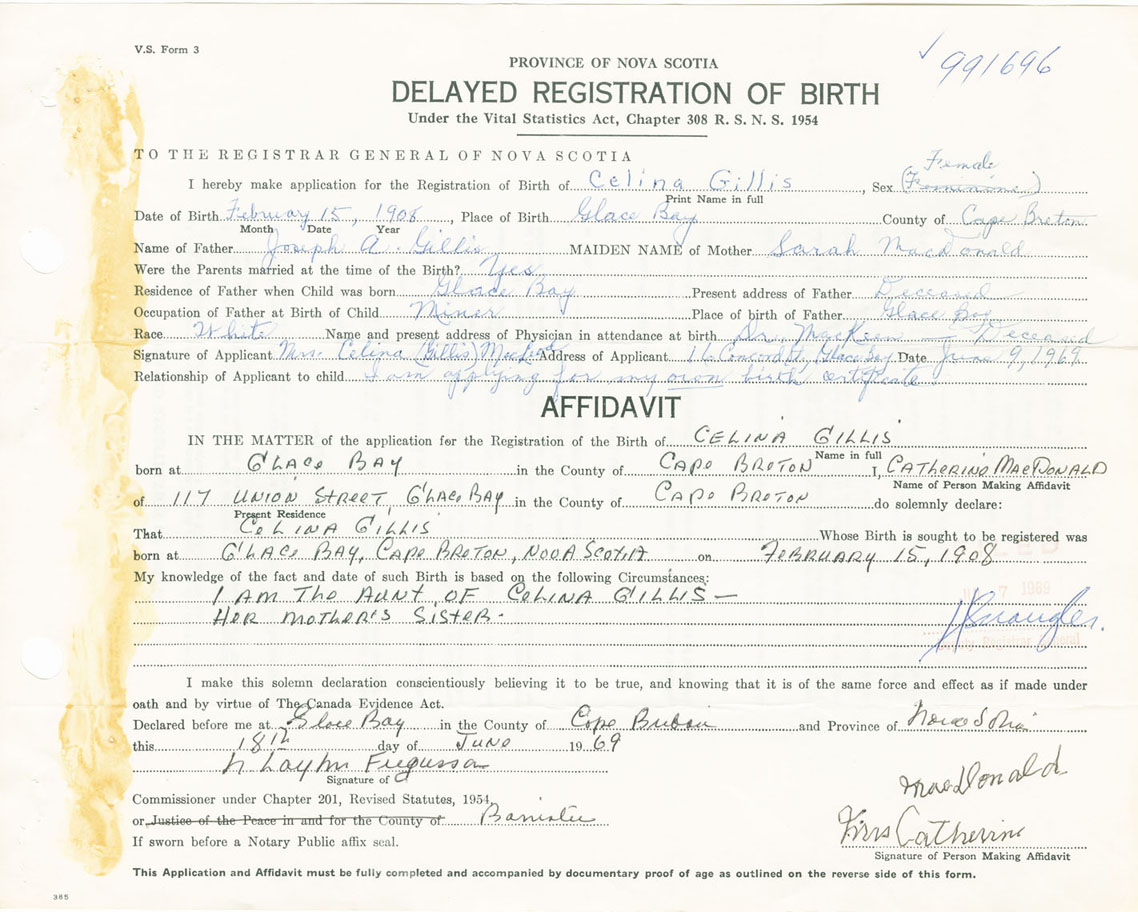 V.S. Form 3
991696
PROVINCE OF NOVA SCOTIA
DELAYED REGISTRATION OF BIRTH
Under the Vital Statistics Act, Chapter 308 R. S. N. S. 1954
TO THE REGISTRAR GENERAL OF NOVA SCOTIA
Female
I hereby make application for the Registration of Birth of Celina Gillis, Sex (Feminine)
Print Name in full
Date of Birth February 15, 1908, Place of Birth Glace Bay County of Cape Breton
Month Date Year
Name of Father Joseph A. Gillis MAIDEN NAME of Mother Sarah MacDonald
Were the Parents married at the time of the Birth? Yes
Residence of Father when Child was born Glace Bay Present address of Father Deceased
Occupation of Father at Birth of Child Miner Place of birth of Father Glace Bay
Race White Name and present address of Physician in attendance at birth Dr. MacKeen — Deceased
Signature of Applicant Mrs. Celina (Gillis) Address of Applicant Concord St, Glace Bay Date June 9, 1969
Relationship of Applicant to child I am applying for my own birth certificate.
AFFIDAVIT
IN THE MATTER of the application for the Registration of the Birth of CELINA GILLIS
Name in full
born at GLACE BAY in the County of CAPE BRETON I, CATHERINE MACDONALD
Name of Person Making Affidavit
of 117 UNION STREET, GLACE BAY in the County of CAPE BRETON do solemnly declare:
Present Residence
That CELINA GILLIS Whose Birth is sought to be registered was
born at GLACE BAY, CAPE BRETON, NOVA SCOTIA on FEBRUARY 15, 1908
My knowledge of the fact and date of such Birth is based on the following Circumstances:
I AM THE AUNT OF CELINA GILLIS —
7 1969
HER MOTHER'S SISTER -
Deputy Registrar General
I make this solemn declaration conscientiously believing it to be true, and knowing that it is of the same force and effect as if made under
oath and by virtue of The Canada Evidence Act.
Declared before me at Glace Bay in the County of Cape Breton and Province of Nova Scotia
this 18th day of JUNE 1969
Signature of
Commissioner under Chapter 201, Revised Statutes, 1954,
or Justice of the Peace in and for the County of Barrister
MacDonald
If sworn before a Notary Public affix seal.
Mrs Catherine
Signature of Person Making Affidavit
This Application and Affidavit must be fully completed and accompanied by documentary proof of age as outlined on the reverse side of this form.
365